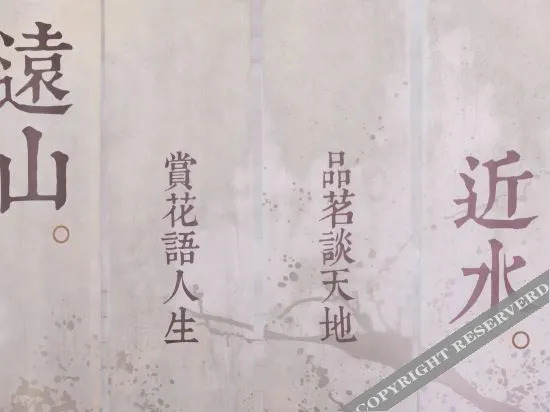 近水。
品茗談天地
賞花語人生
遠山。
COPYRIGHT RESERVERD